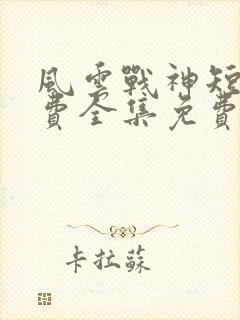 風雲戰神短
費全集免費
卡拉蘇